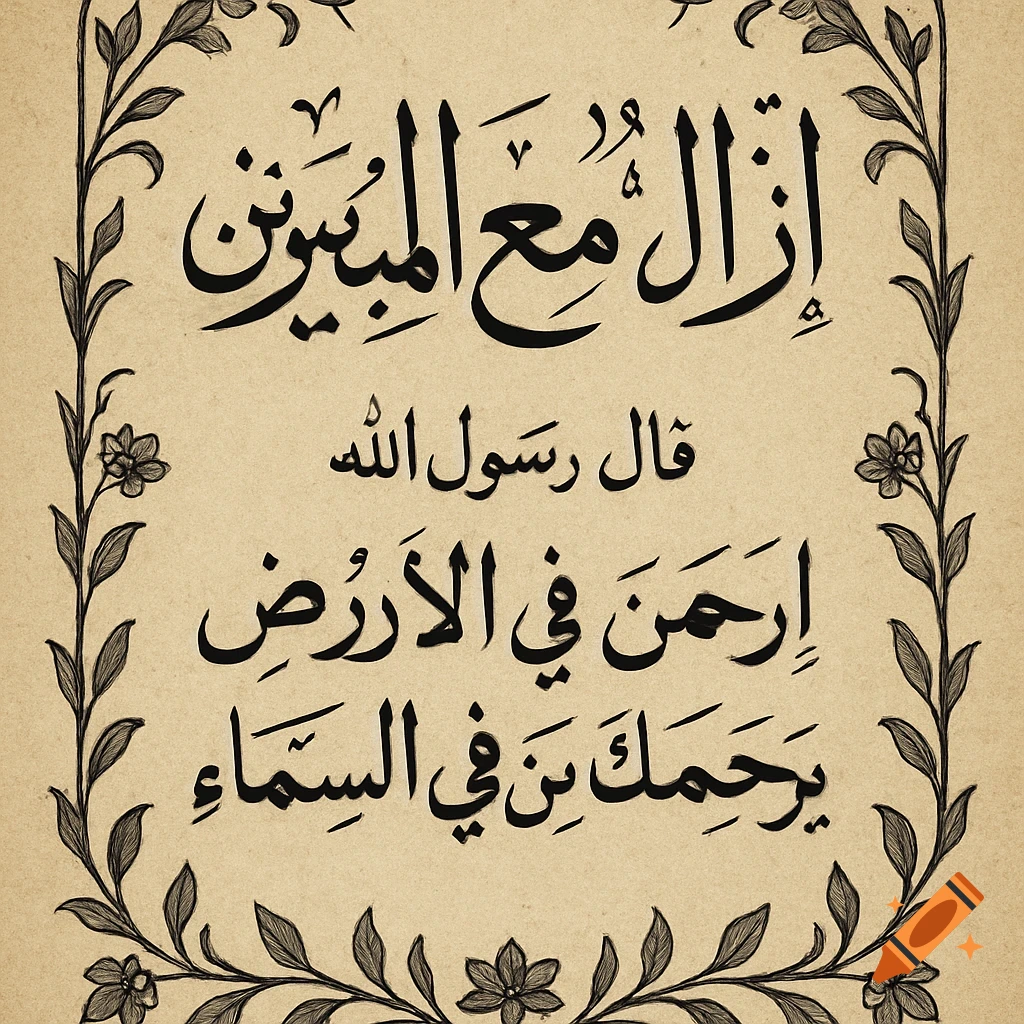 إزال مع المبيونن
قال رسول الله
إرحمن في الأررض
يرحمك بن في السماء